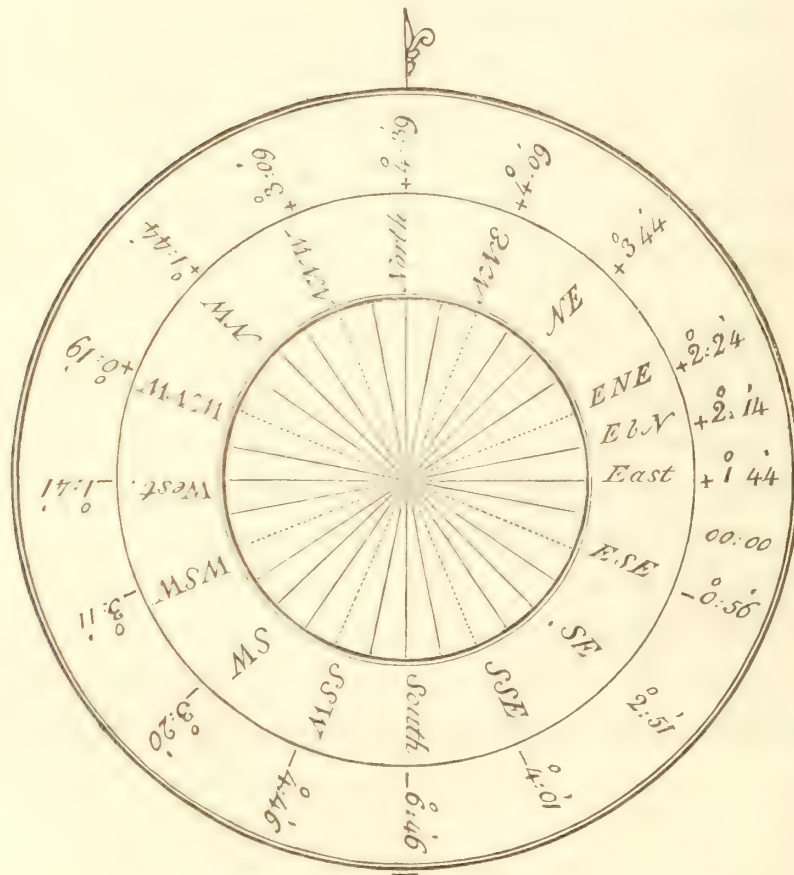 North +4°:39'
NNE +4°:09'
NE +3°44'
ENE +2°:24'
EbN +2°:14'
East +1°44'
00:00
ESE –0°:56'
SE 2°:51'
SSE –4°:01'
South –6°:46'
SSW –4°:46'
SW –3°:20'
WSW –3°:11'
West. –1°:41'
WNW +0°:19'
NW +1°:44'
NNW +3°:09'